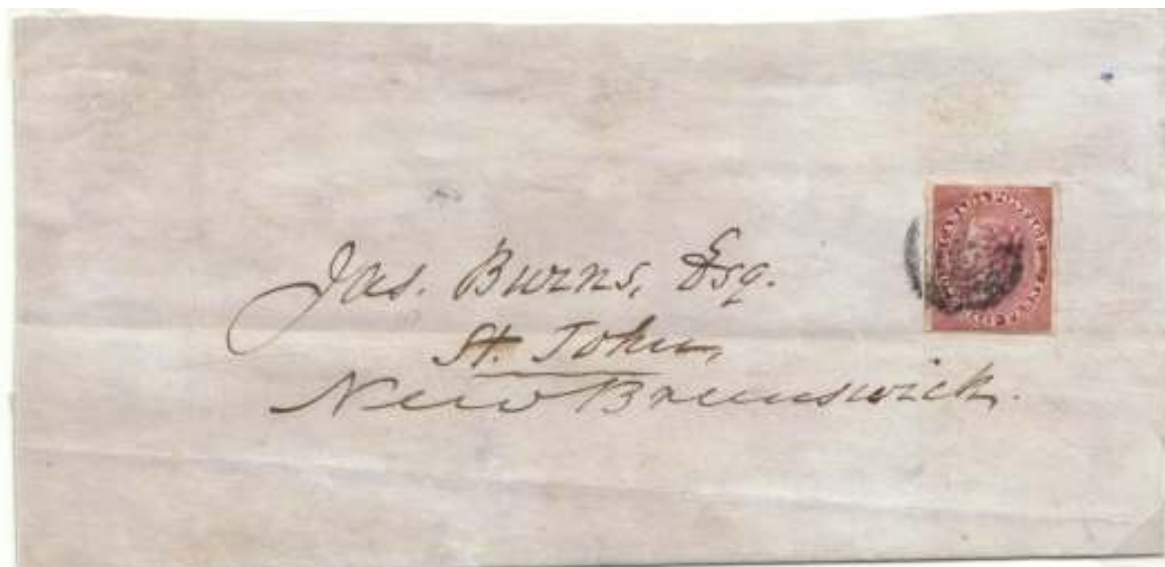 Jas. Burns, Esq.
St. John,
New Brunswick.
CANADA POSTAGE